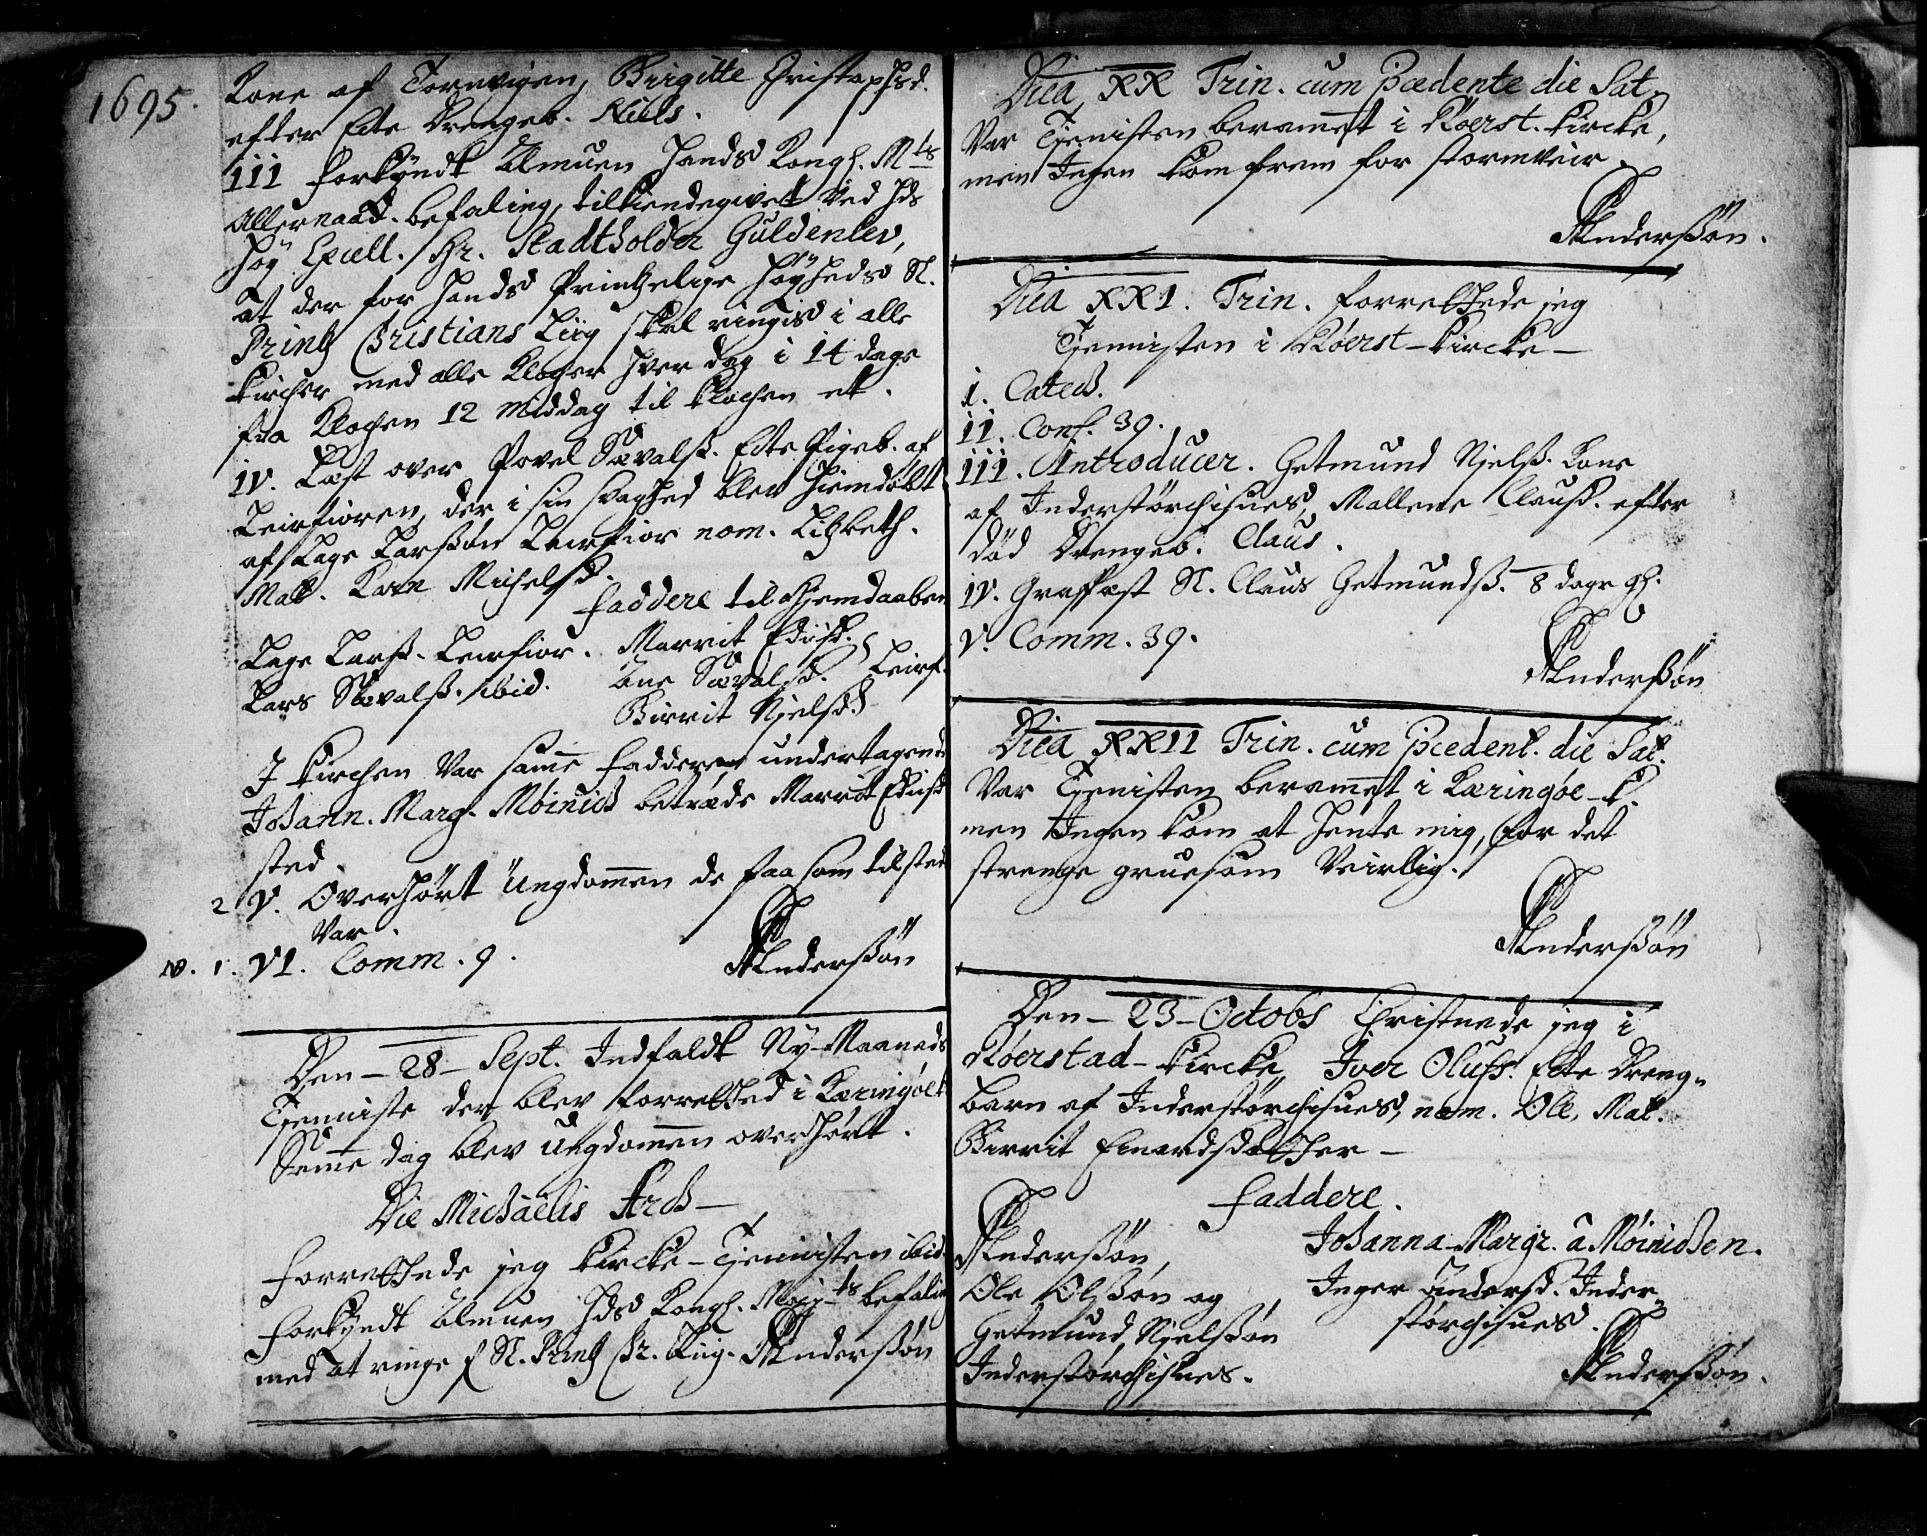 1695.
Kone af Tornvigen, Birgitte Christophsd.
efter Ecte Drengeb. Niels.
III forkÿndt Almuen Hands Kongl. Mts
Allernaad. befaling, tilkiendegivet Ved Hds
Høy Excell. Hr. Stadtholder Guldenlev,
At der for Hands Printzelige Høÿheds Sl.
Printz Christians Liig skal ringis i alle
Kircher med alle Klocher hver dag i 14 dage
fra Klochen 12 Middag til Klochen et.
IV. Læst over Povel Sævalss. Ecte Pigeb. af
Leirfioren, der i sin svaghed blev Hiemdøbt
af Lage Larssøn Leirfior nom. Litzbeth.
Mat. Karn Michelsd.
Faddere til Hiemdaaben
Lage Larss. Leirfior. Marrit
Lars Sævalss. ibid. Ane Sævalsd. Leirf.
Birrit Njelsd.
I Kirchen Var samme Faddere, undertagende
Johann. Marg. Møinich betræde Marrit
sted.
2 V. Overhørt Ungdommen de faa som tilsted
Var.
1. VI. Comm. 9. Anderssøn
Den - 28 - Sept. Indfaldt Ny-Maaneds
Tjenniste der blev forrettet i Kæringøe
Samme dag blev Ungdommen overhørt.
Die Michaëlis Arch -
Forrettede jeg Kircke-Tjennisten ibid.
forkÿndt Almuen Hds Kongl. Maj-ts befaling
med at ringe f Sl. Printz Chr. Liig. Anderssøn
Dica XX Trin. cum præcedente die Sat.
Var Tjenisten berammet i Røerst. Kircke,
men Ingen kom frem for stormveir.
Anderssøn.
Dica XXI. Trin. forrettede jeg
Tjennisten i Røerst-Kircke -
I. Catech.
II. Conf. 39.
III. Introducer. Getmund Njelss. Kone
af Inderstørchisnes, Mallene Clausd. efter
død Drengeb. Claus.
IV. Graffæst Sl. Claus Getmundss. 8 dage gl.
V. Comm. 39.
Anderssøn
Dica XXII Trin. cum præcedent. die Sat.
Var Tjenisten berammet i Kæringøe-K.
men Ingen kom at hente mig, for det
strenge gruesom Veirlig.
Anderssøn
Den - 23 - Octobr Christnede jeg i
Røerstad-Kircke Iver Olufs. Ecte Dreng-
barn af Inderstørchisnes, nom. Ole, Mat.
Birrit Einardsdatter -
Faddere.
Anderssøn,
Ole Olssøn og
Getmund Njelssøn
Inderstørchisnes.
Johanna Margr. a Møinichen.
Inger Andersd. Inder-
størchisnes.
Anderssøn.